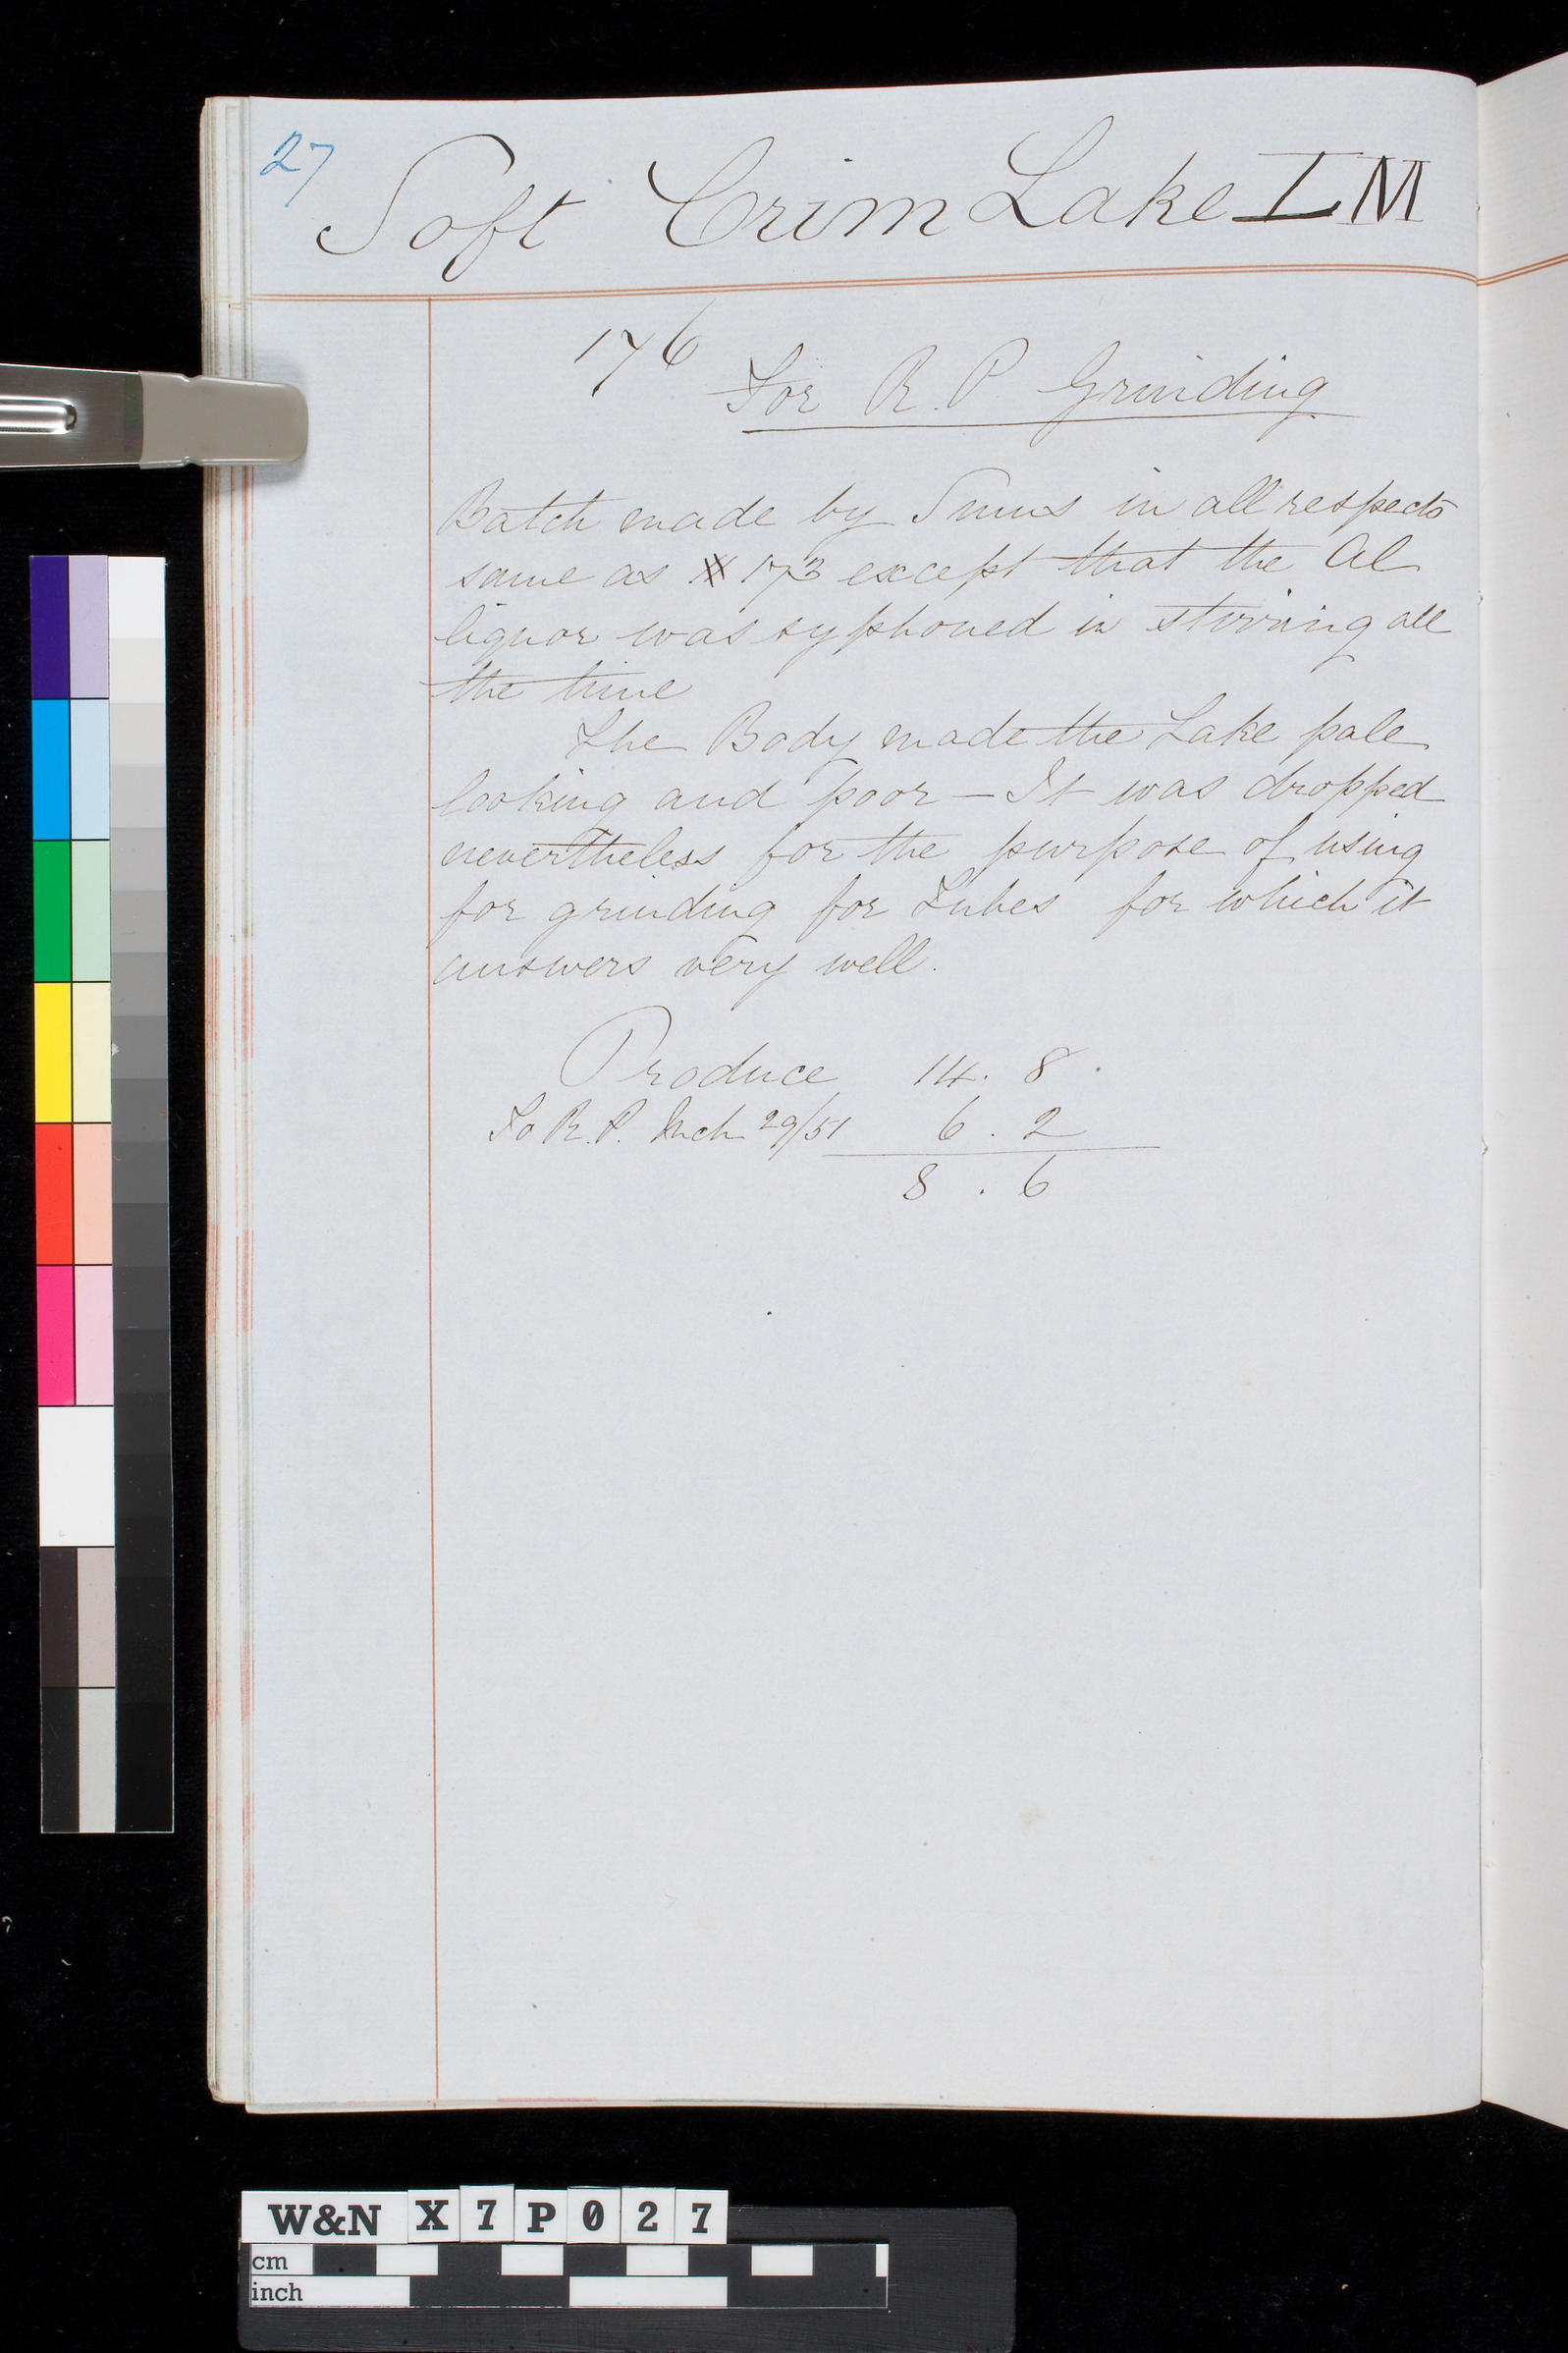 27
Soft Crim Lake LM
176
For R. P. Grinding
Batch made by Simms in all respects
same as 173 except that the Al
liquor was syphoned in stirring all
the time
The Body made the Lake pale
looking and poor – It was dropped
nevertheless for the purpose of using
for grinding for Tubes for which it
answers very well.
Produce 14. 8.
To R. P. Mch 29/51 6. 2
8. 6
W&N X7P027
cm
inch